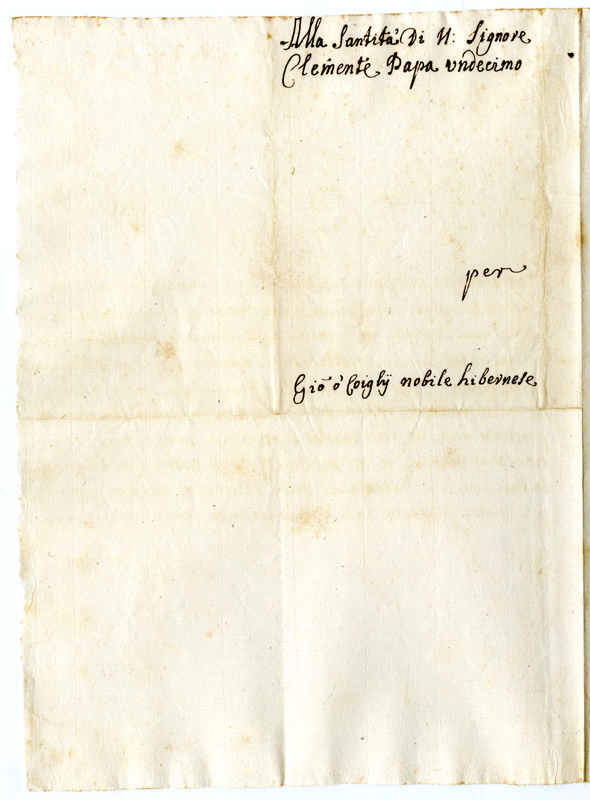 Alla Santità Di N: Signore
Clemente Papa vndecimo
per
Gio ò Coigly nobile hibernese